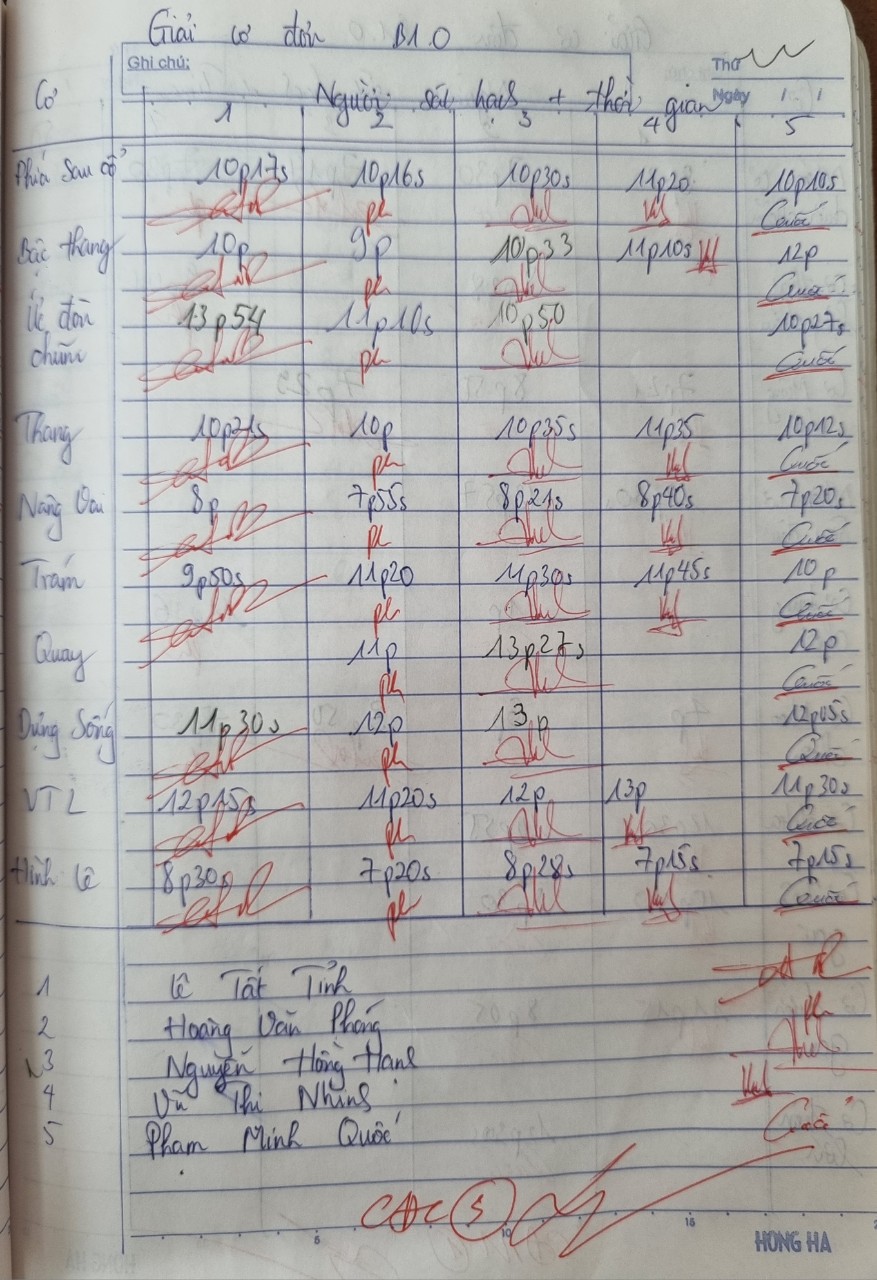 Giải cơ đơn B1.0
Ghi chú:
Thứ
Ngày / /
Cơ Người sát hạch + thời gian
1 2 3 4 5
Phía sau cổ 10p17s 10p16s 10p30s 11p20 10p10s
ph Quốc
Bậc thang 10p 9p 10p33 11p10s 12p
ph Quốc
Ức đòn 13p54 11p10s 10p50 10p27s
chũm ph Quốc
Thang 10p21s 10p 10p35s 11p35 10p12s
ph Quốc
Nâng vai 8p 7p55s 8p21s 8p40s 7p20s
ph Quốc
Trám 9p50s 11p20 11p30s 11p45s 10p
ph Quốc
Quay 11p 13p27s 12p
ph Quốc
Dựng Sống 11p30s 12p 13p 12p05s
ph Quốc
VTL 12p15s 11p20s 12p 13p 11p30s
ph Quốc
Hình lê 8p30s 7p20s 8p28s 7p15s 7p15s
ph Quốc
1 Lê Tất Tỉnh
2 Hoàng Văn Phóng ph
3 Nguyễn Hồng Hạnh
4 Vũ Thị Nhinh
5 Phạm Minh Quốc Quốc
CAC 5
5 10 15
HONG HA